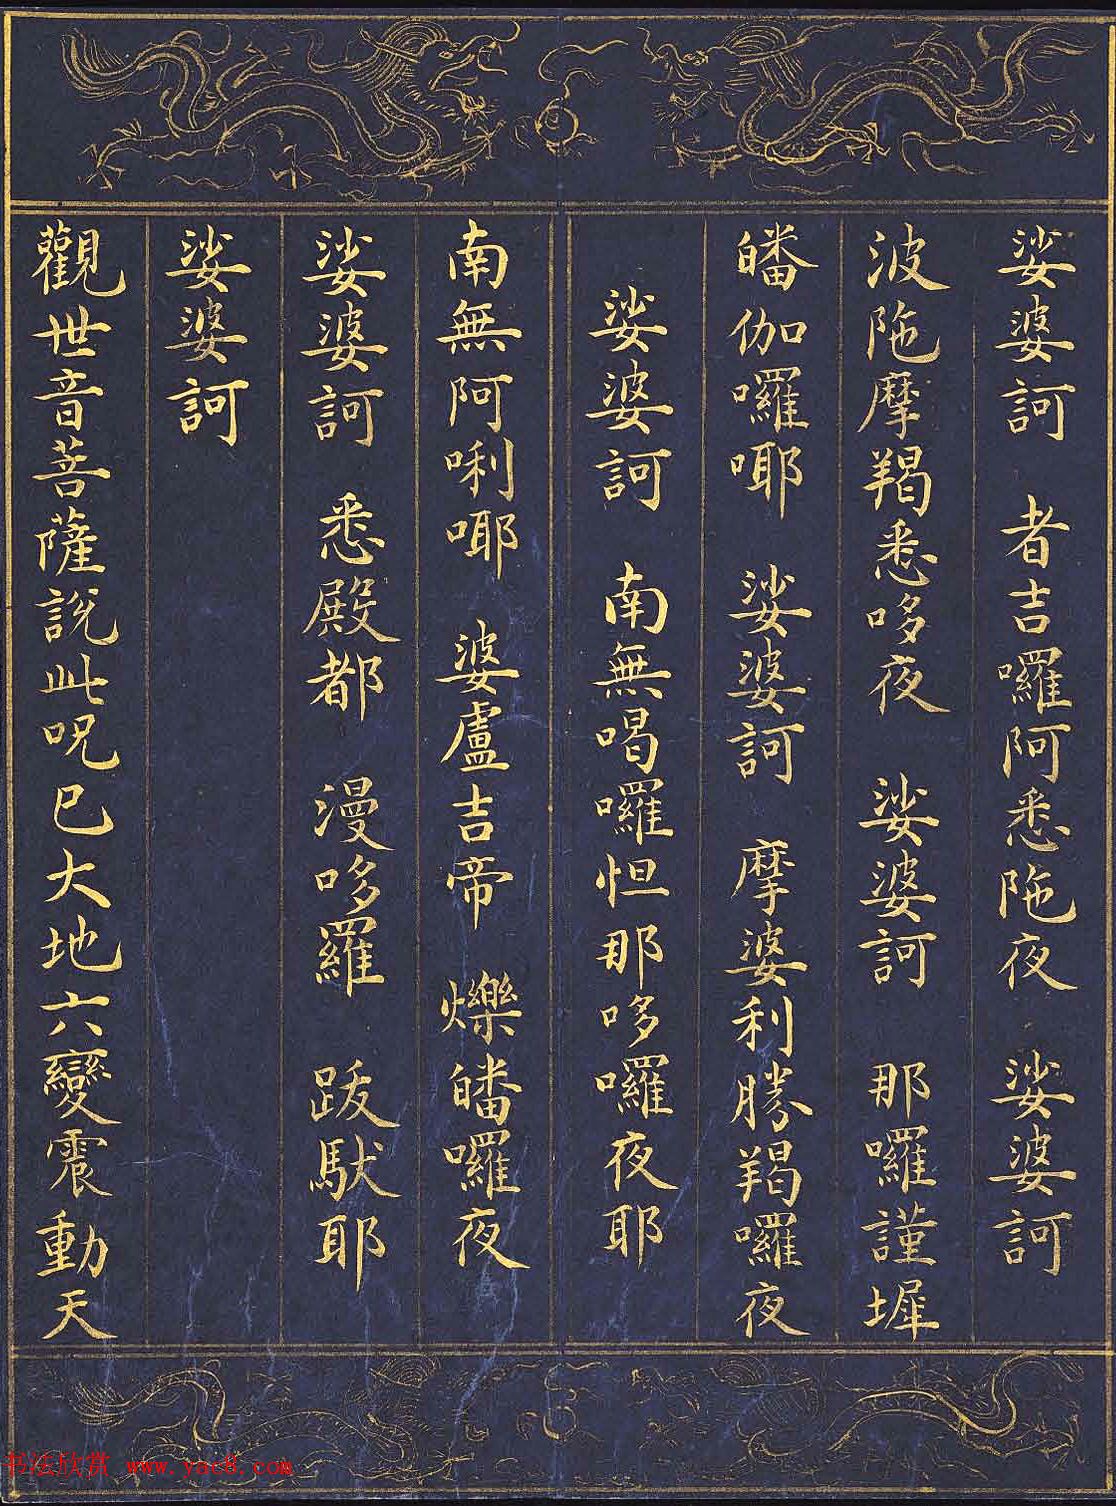 娑婆訶 者吉囉阿悉陁夜 娑婆訶
波陁摩羯悉哆夜 娑婆訶 那囉謹墀
皤伽囉㖿 娑婆訶 摩婆利勝羯囉夜
娑婆訶 南無喝囉怛那哆囉夜耶
南無阿唎㖿 婆盧吉帝 爍皤囉夜
娑婆訶 悉殿都 漫哆羅 跋馱耶
娑婆訶
觀世音菩薩說此呪已大地六變震動天
书法欣赏 www.yac8.com